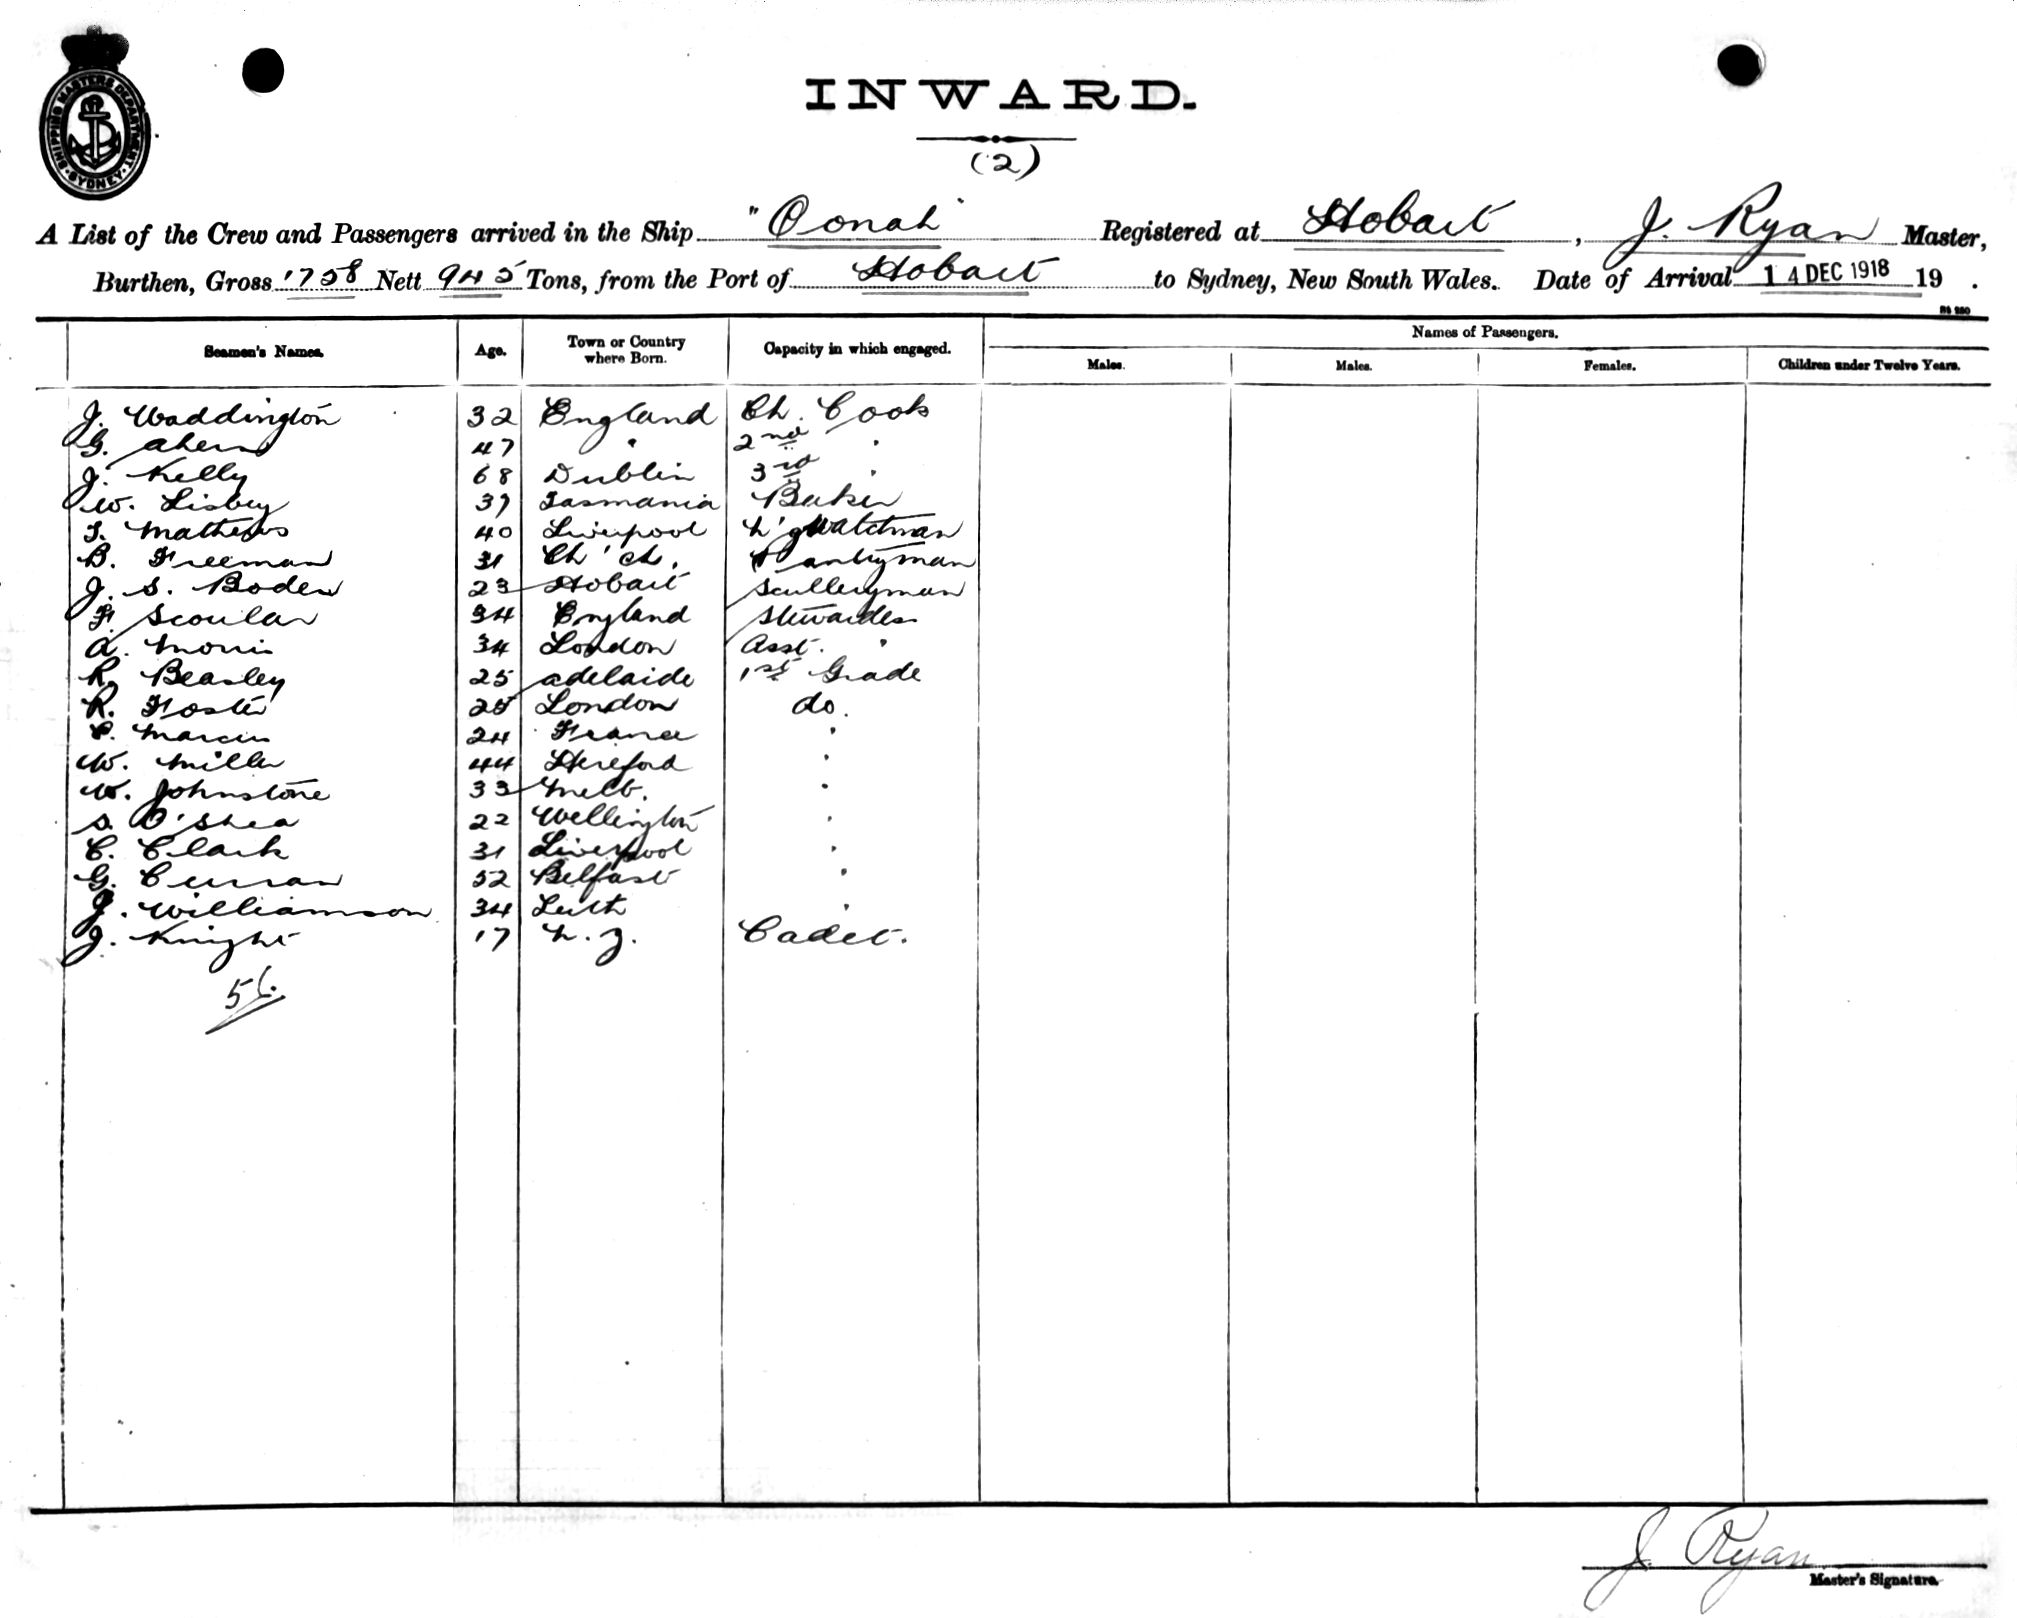 SHIPPING MASTERS DEPARTMENT
SYDNEY
INWARD.
(2)
A List of the Crew and Passengers arrived in the Ship "Oonah" Registered at Hobart, J. Ryan Master,
Burthen, Gross 1758 Nett 945 Tons, from the Port of Hobart to Sydney, New South Wales. Date of Arrival 14 DEC 1918 19 .
Seamen's Names. Age. Town or Country where Born. Capacity in which engaged. Names of Passengers.
Males. Males. Females. Children under Twelve Years.
J. Waddington 32 England Ch. Cook
G. Ahern 47 " 2nd "
J. Kelly 68 Dublin 3rd "
W. Lisbey 37 Tasmania Baker
T. Mathews 40 Liverpool N'g Watchman
B. Freeman 31 Ch'ch. Pantryman
J. S. Boden 23 Hobart Sculleryman
F. Scoular 34 England Stewardess
A. Morris 34 London Asst. "
R. Beasley 25 Adelaide 1st Grade
R. Foster 25 London do.
Marcus 24 France "
W. Miller 44 Hereford "
W. Johnstone 33 Melb. "
S. O'Shea 22 Wellington "
C. Clark 31 Liverpool "
G. Curran 52 Belfast "
J. Williamson 34 Leith "
J. Knight 17 N.Z. Cadet.
56.
J. Ryan
Master's Signature.